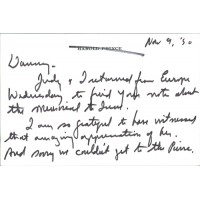 Nov 9, '80
HAROLD PRINCE
Danny -
Judy & I returned from Europe
Wednesday to find your note about
the memorial to Irene.
I am so grateful to have witnessed
that amazing appreciation of her.
And sorry we couldn't get to the Pierre.